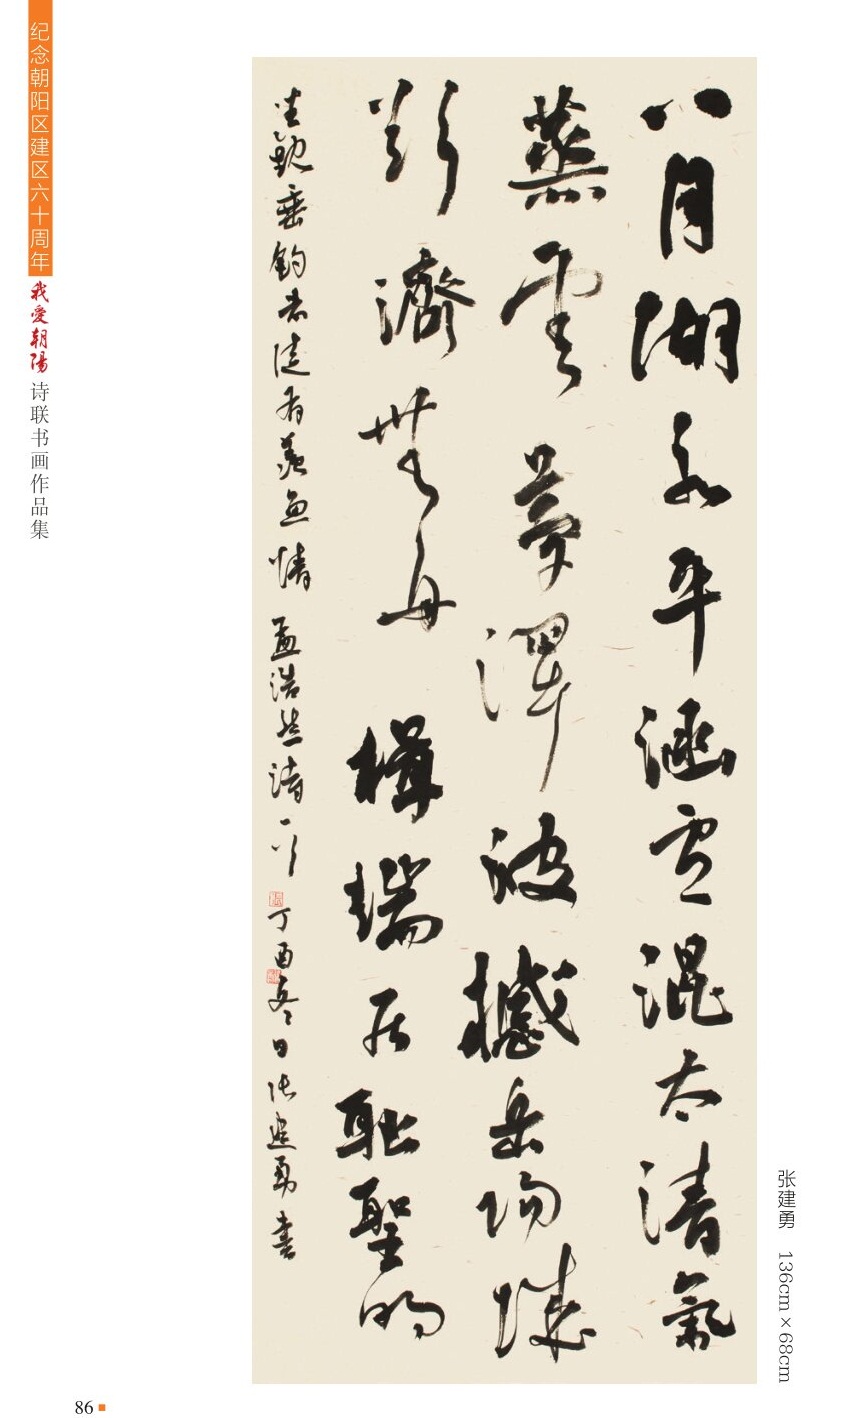 纪念朝阳区建区六十周年
我愛朝陽
诗联书画作品集
八月湖水平涵虛混太清氣
蒸雲夢澤波撼岳陽城
欲濟無舟楫端居耻聖明
坐觀垂釣者徒有羨魚情 孟浩然詩一首 丁酉冬日張建勇書
张建勇 136cm×68cm
86